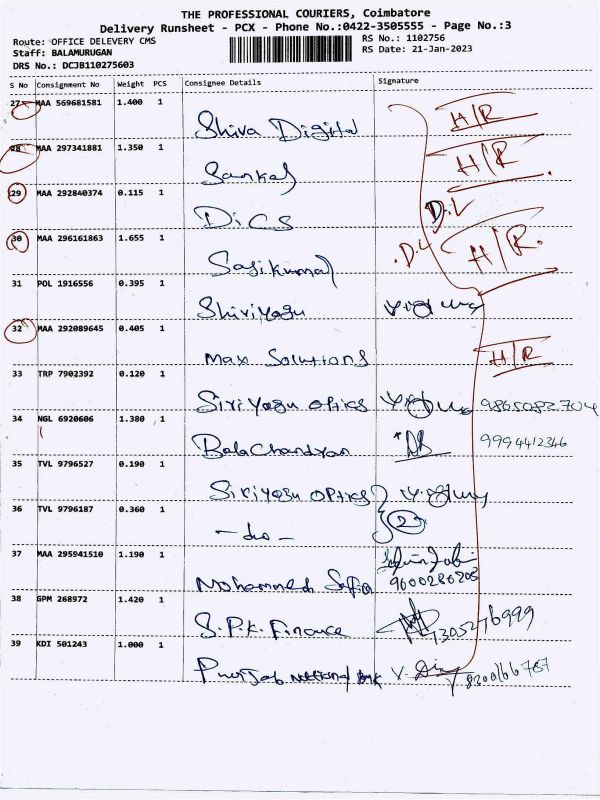 THE PROFESSIONAL COURIERS, Coimbatore
Delivery Runsheet - PCX - Phone No.:0422-3505555 - Page No.:3
Route: OFFICE DELEVERY CMS
RS No.: 1102756
Staff: BALAMURUGAN
RS Date: 21-Jan-2023
DRS No.: DCJB110275603
S No Consignment No Weight PCS Consignee Details Signature
27 MAA 569681581 1.400 1 H/R
Shiva Digital
28 MAA 297341881 1.350 1 H/R
Sankar
29 MAA 292840374 0.115 1 D.L
DiCS
30 MAA 296161863 1.655 1 D.L H/R.
Sasikumar
31 POL 1916556 0.395 1
Shiriyasu
32 MAA 292089645 0.405 1 H/R
Max Solutions
33 TRP 7902392 0.120 1
Siriyasu optics 9865082704
34 NGL 6920606 1.380 1
Bala Chandran 9994412346
35 TVL 9796527 0.190 1
Siriyasu optics
36 TVL 9796187 0.360 1 2
- do -
37 MAA 295941510 1.190 1
Mohammed 9600286203
38 GPM 268972 1.420 1
S.P.K. Finance 7305276999
39 KDI 501243 1.000 1
Punjab National Bank 8300166787